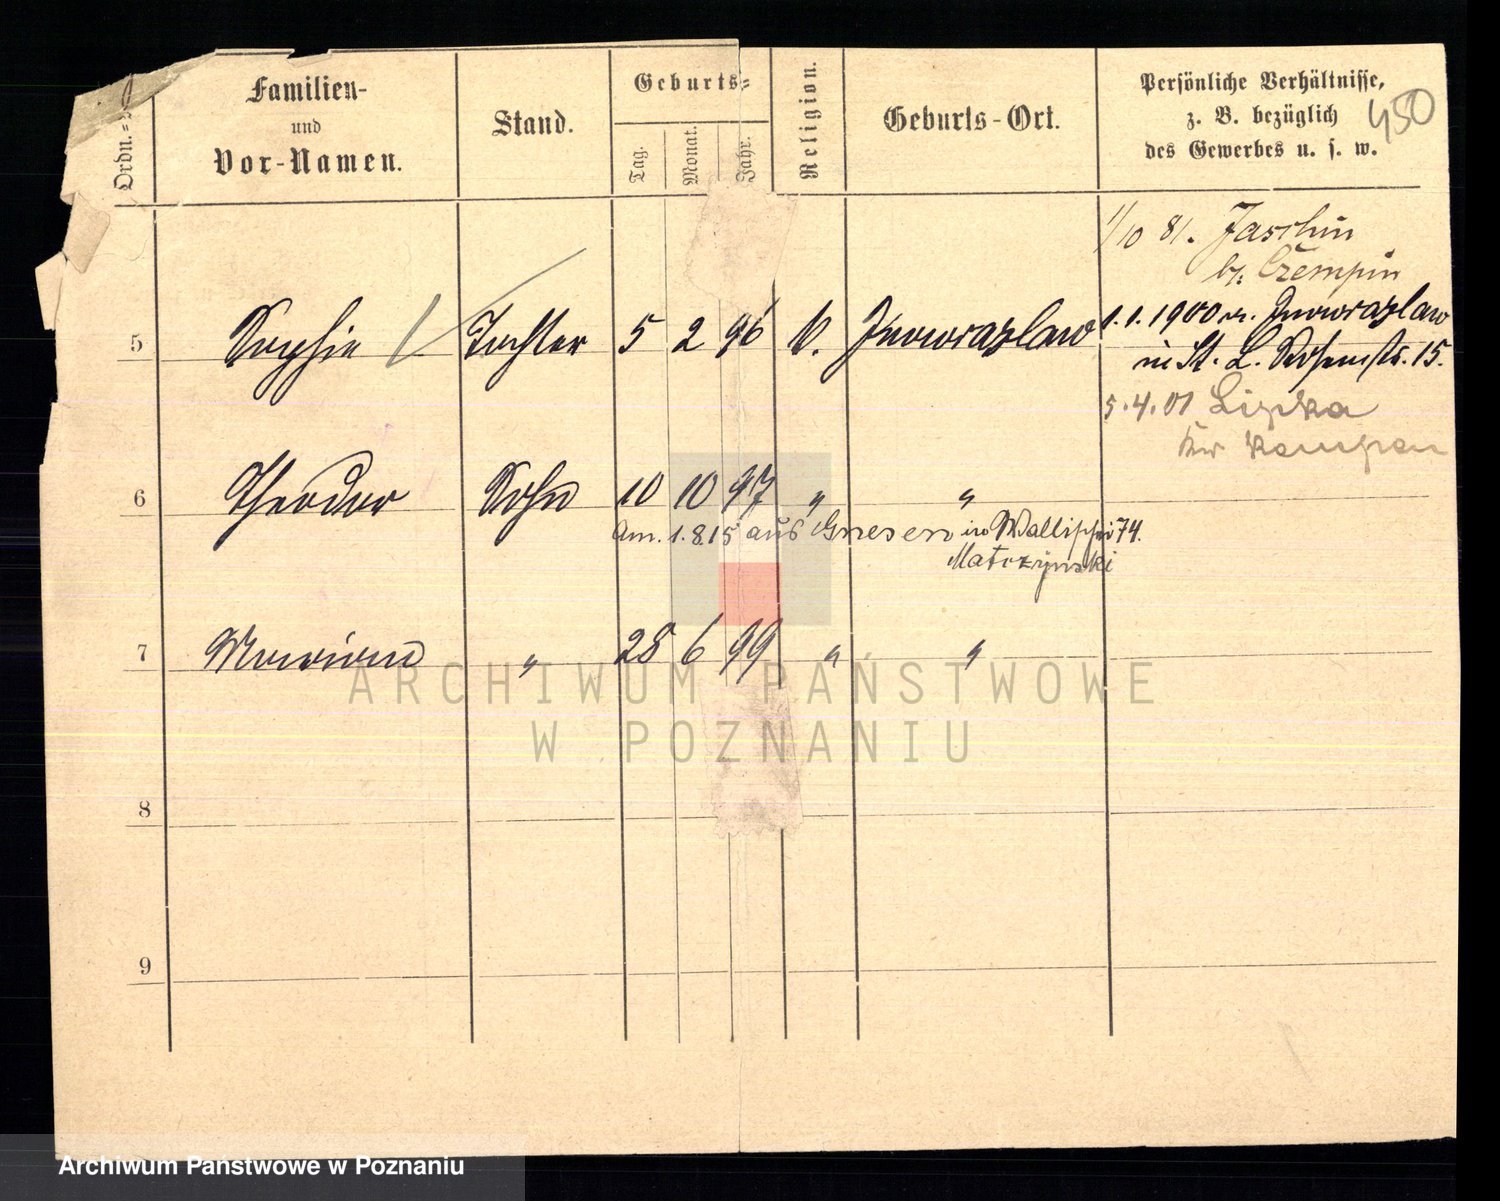 Ordn.=
Familien-
und
Vor-Namen.
Stand.
Geburts=
Tag.
Monat.
Jahr.
Religion.
Geburts-Ort.
Persönliche Verhältnisse,
z. B. bezüglich
des Gewerbes u. s. w.
450
1/10 81. Jaschin
b/. Czempin
5 Sophie Tochter 5 2 96 k. Inowrazlaw 1.1.1900 v. Inowrazlaw
in St. L. 15.
5.4.01
Kempen
6 Theodor Sohn 10 10 97 " "
Am. 1.8.15 aus Gnesen in Wallischei 74.
Matczynski
7 Marian " 28 6 99 " "
8
9
ARCHIWUM PAŃSTWOWE
W POZNANIU
Archiwum Państwowe w Poznaniu